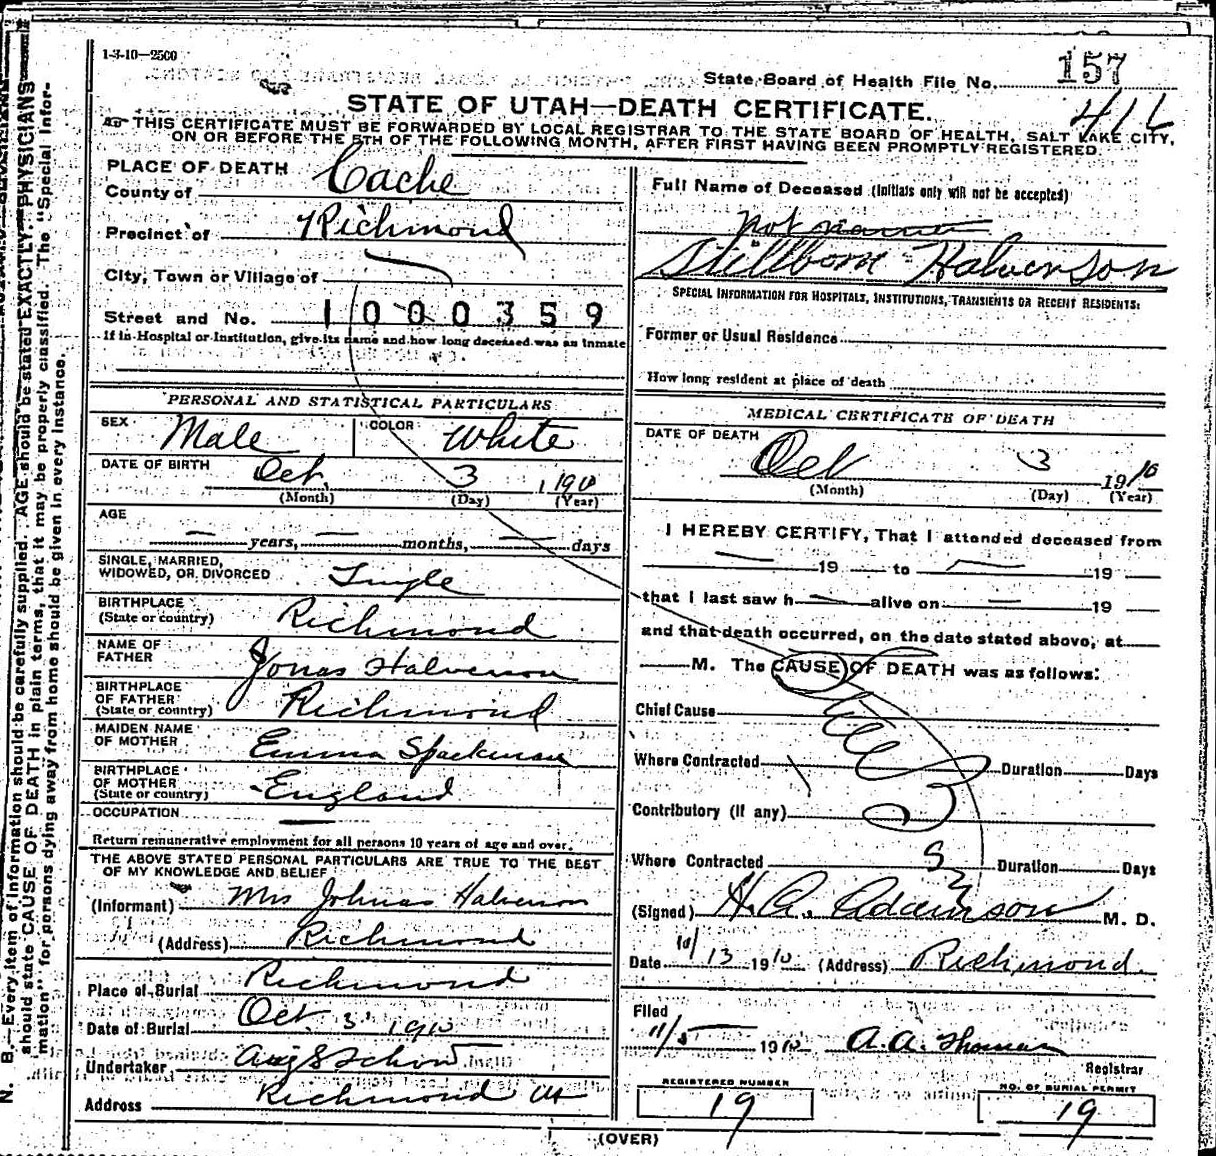 1-3-10—2500
State Board of Health File No. 157
STATE OF UTAH—DEATH CERTIFICATE.
THIS CERTIFICATE MUST BE FORWARDED BY LOCAL REGISTRAR TO THE STATE BOARD OF HEALTH, SALT LAKE CITY,
ON OR BEFORE THE 5TH OF THE FOLLOWING MONTH, AFTER FIRST HAVING BEEN PROMPTLY REGISTERED.
PLACE OF DEATH
County of Cache
Precinct of Richmond
City, Town or Village of
Street and No. 1000359
If in Hospital or Institution, give its name and how long deceased was an inmate
PERSONAL AND STATISTICAL PARTICULARS
SEX Male COLOR White
DATE OF BIRTH Oct. 3, 1910
(Month) (Day) (Year)
AGE
— years, — months, — days
SINGLE, MARRIED,
WIDOWED, OR DIVORCED Single
BIRTHPLACE
(State or country) Richmond
NAME OF
FATHER Jonas Halverson
BIRTHPLACE
OF FATHER
(State or country) Richmond
MAIDEN NAME
OF MOTHER Emma Spackman
BIRTHPLACE
OF MOTHER
(State or country) England
OCCUPATION —
Return remunerative employment for all persons 10 years of age and over.
THE ABOVE STATED PERSONAL PARTICULARS ARE TRUE TO THE BEST
OF MY KNOWLEDGE AND BELIEF
(Informant) Mrs Johnas Halverson
(Address) Richmond
Place of Burial Richmond
Date of Burial Oct 3 1910
Undertaker Aug S Schow
Address Richmond Ut
Full Name of Deceased (Initials only will not be accepted)
not named
Stillborn Halverson
SPECIAL INFORMATION FOR HOSPITALS, INSTITUTIONS, TRANSIENTS OR RECENT RESIDENTS:
Former or Usual Residence
How long resident at place of death
MEDICAL CERTIFICATE OF DEATH
DATE OF DEATH Oct 3 1910
(Month) (Day) (Year)
I HEREBY CERTIFY, That I attended deceased from
— 19 — to — 19 —
that I last saw h — alive on — 19 —
and that death occurred, on the date stated above, at
— M. The CAUSE OF DEATH was as follows:
Chief Cause
Where Contracted Duration Days
Contributory (if any)
Where Contracted Duration Days
(Signed) H. A. Adamson M. D.
Date 10/13 1910 (Address) Richmond.
Filed
11/5 1910 A. A. Thomas
Registrar
REGISTERED NUMBER
19
NO. OF BURIAL PERMIT
19
(OVER)
N. B.—Every item of information should be carefully supplied. AGE should be stated EXACTLY. PHYSICIANS
should state CAUSE OF DEATH in plain terms, that it may be properly classified. The "Special Infor-
mation" for persons dying away from home should be given in every instance.